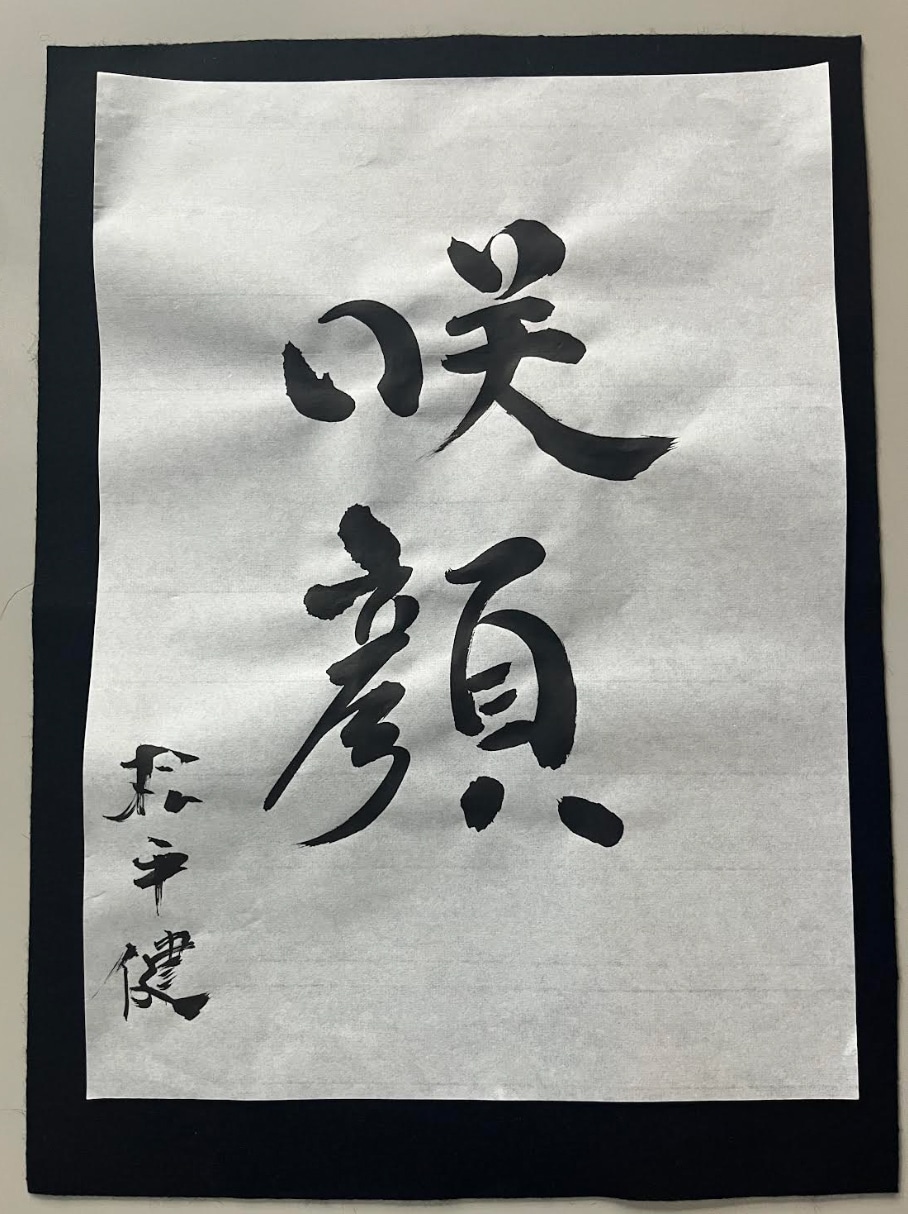 咲顔
松平健